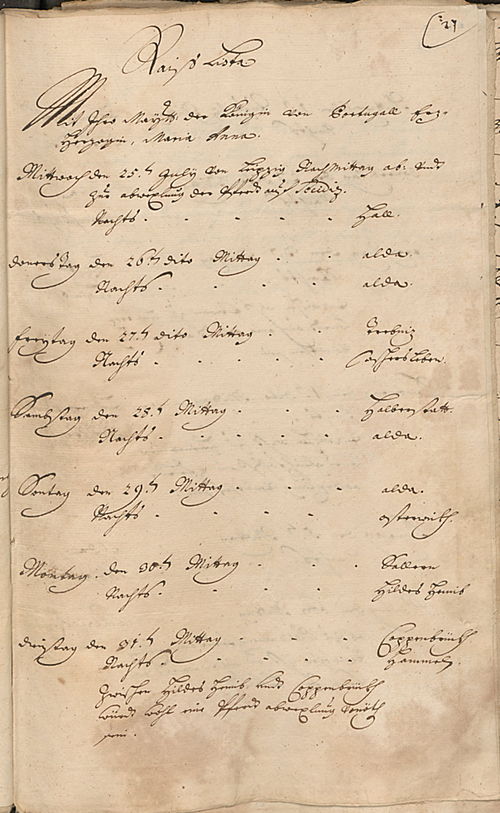 27
Raiß Lista
Mit Ihro Maytt: der Königin von Portugall Erz-
Herzogin, Maria Anna.
Mittwoch den 25.t July von Leipzig Nachmittag ab. und
zur abwexlung der Pferd auf
Nachts - - - - Hall.
donerstag den 26.t dito Mittag - - alda
Nachts - - - - alda.
freytag den 27.t dito Mittag - - Trebniz
Nachts - - - - Aschersleben.
Sambstag den 28.t Mittag - - - Halberstatt.
Nachts - - - - alda.
Sontag den 29.t Mittag - - - alda.
Nachts - - - - osterwith.
Montag. den 30.t Mittag - - -
Nachts - - - - Hildes Heimb
dinstag den 31.t Mittag - - - Coppenbrüch
Nachts - - - - Hammeln
Zwischen Hildes Heimb und Coppenbrüch
würdt wohl eine Pferd abwexlung
sein.